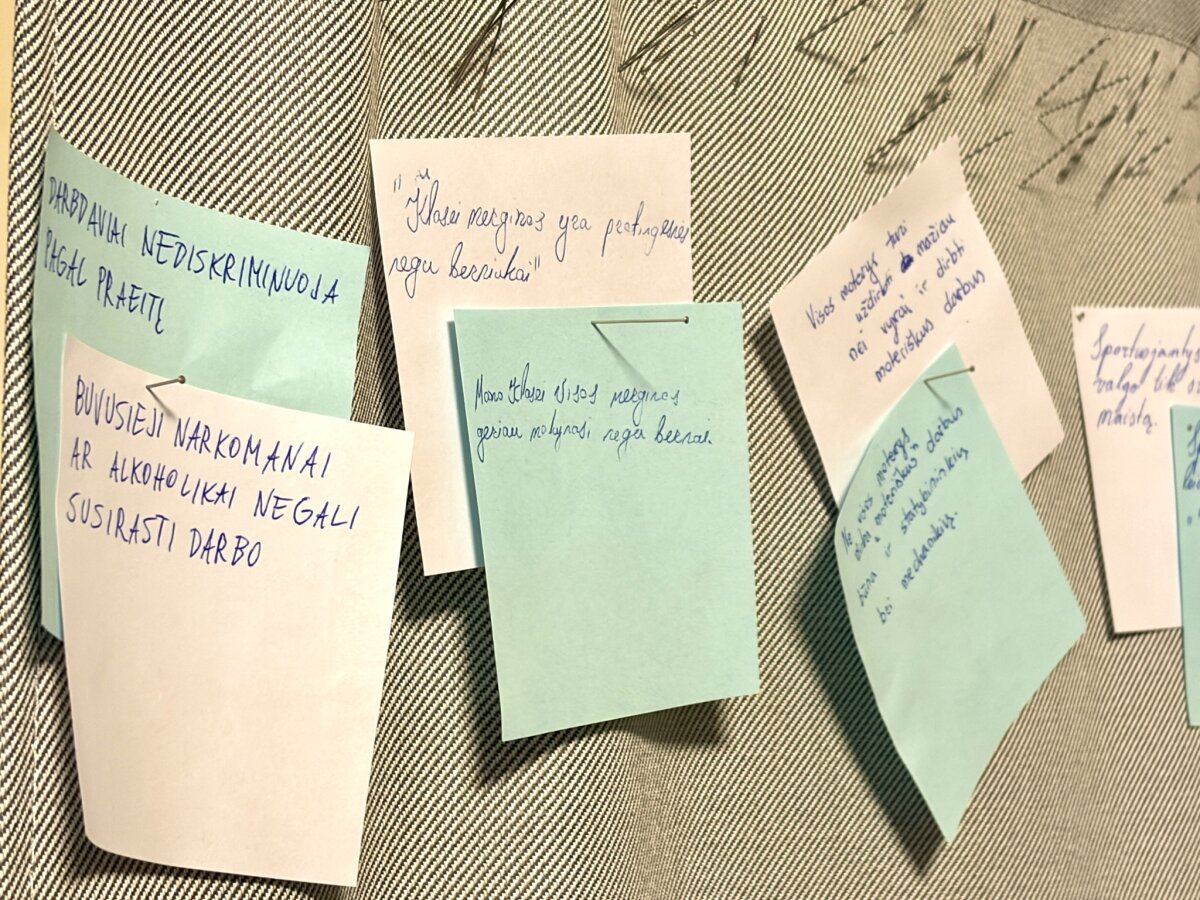 DARBDAVIAI NEDISKRIMINUOJA
PAGAL PRAEITĮ
BUVUSIEJI NARKOMANAI
AR ALKOHOLIKAI NEGALI
SUSIRASTI DARBO
"Klasei merginos yra protingesnės
negu berniukai"
Mano klasei visos merginos
geriau mokynasi negu bernai.
Visos moterys turi
uždirbti mažiau
nei vyrai ir dirbti
moteriškus darbus
Ne visos moterys
dirba "moteriškus" darbus
būna ir statybininkių
bei mechanikių.
Sportuojantys
valgo tik
maistą.